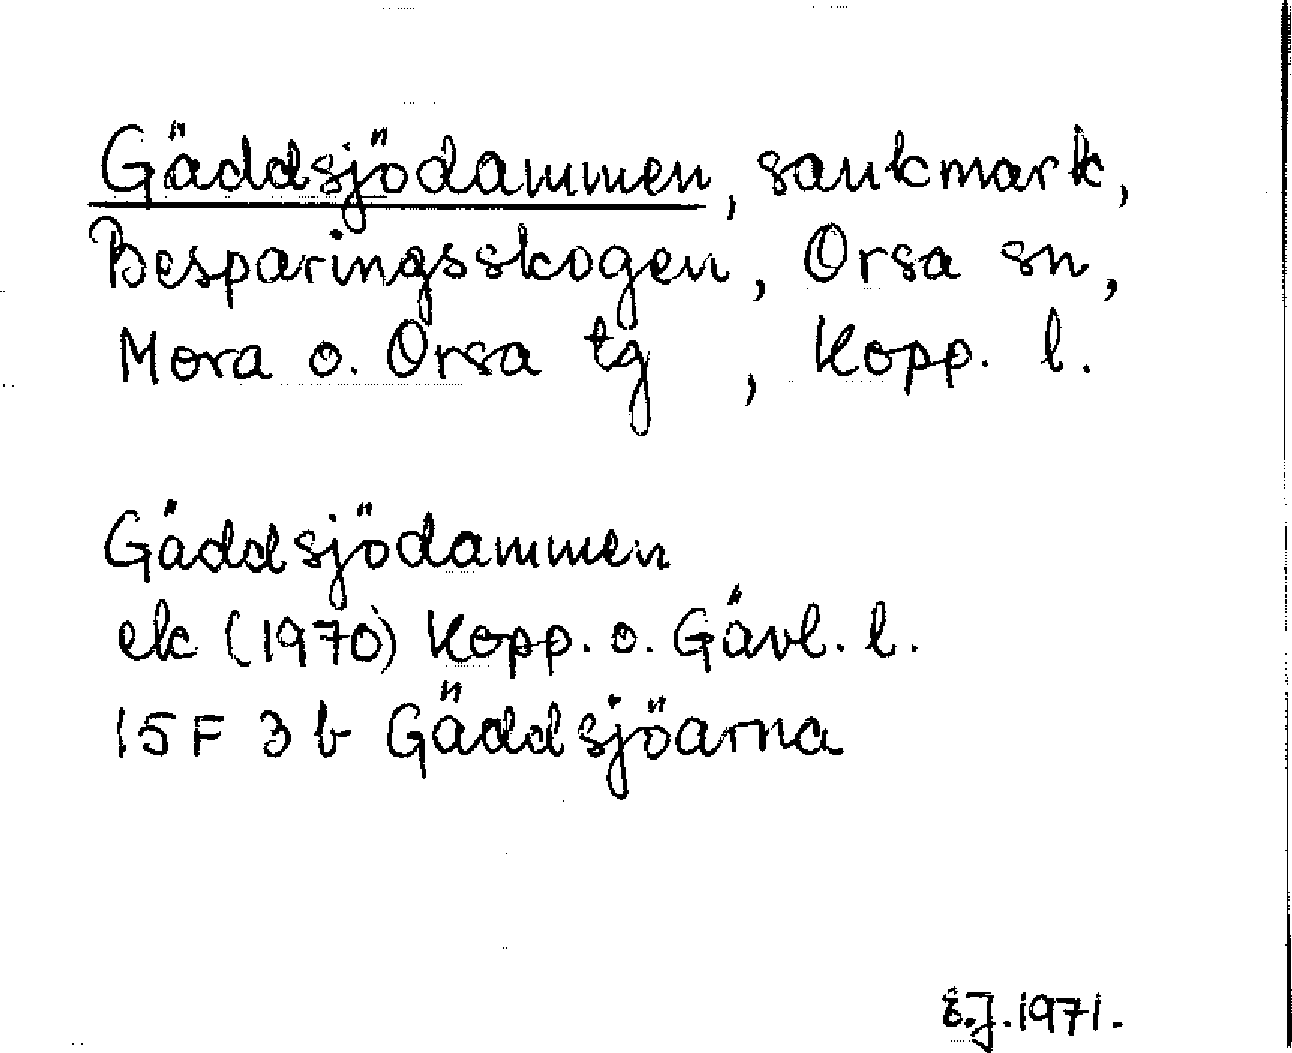 Gäddsjödammen, sankmark,
Besparingsskogen, Orsa sn,
Mora o. Orsa tg, Kopp. l.
Gäddsjödammen
ek (1970) Kopp. o. Gävl. l.
15F 3b Gäddsjöarna
E.J. 1971.